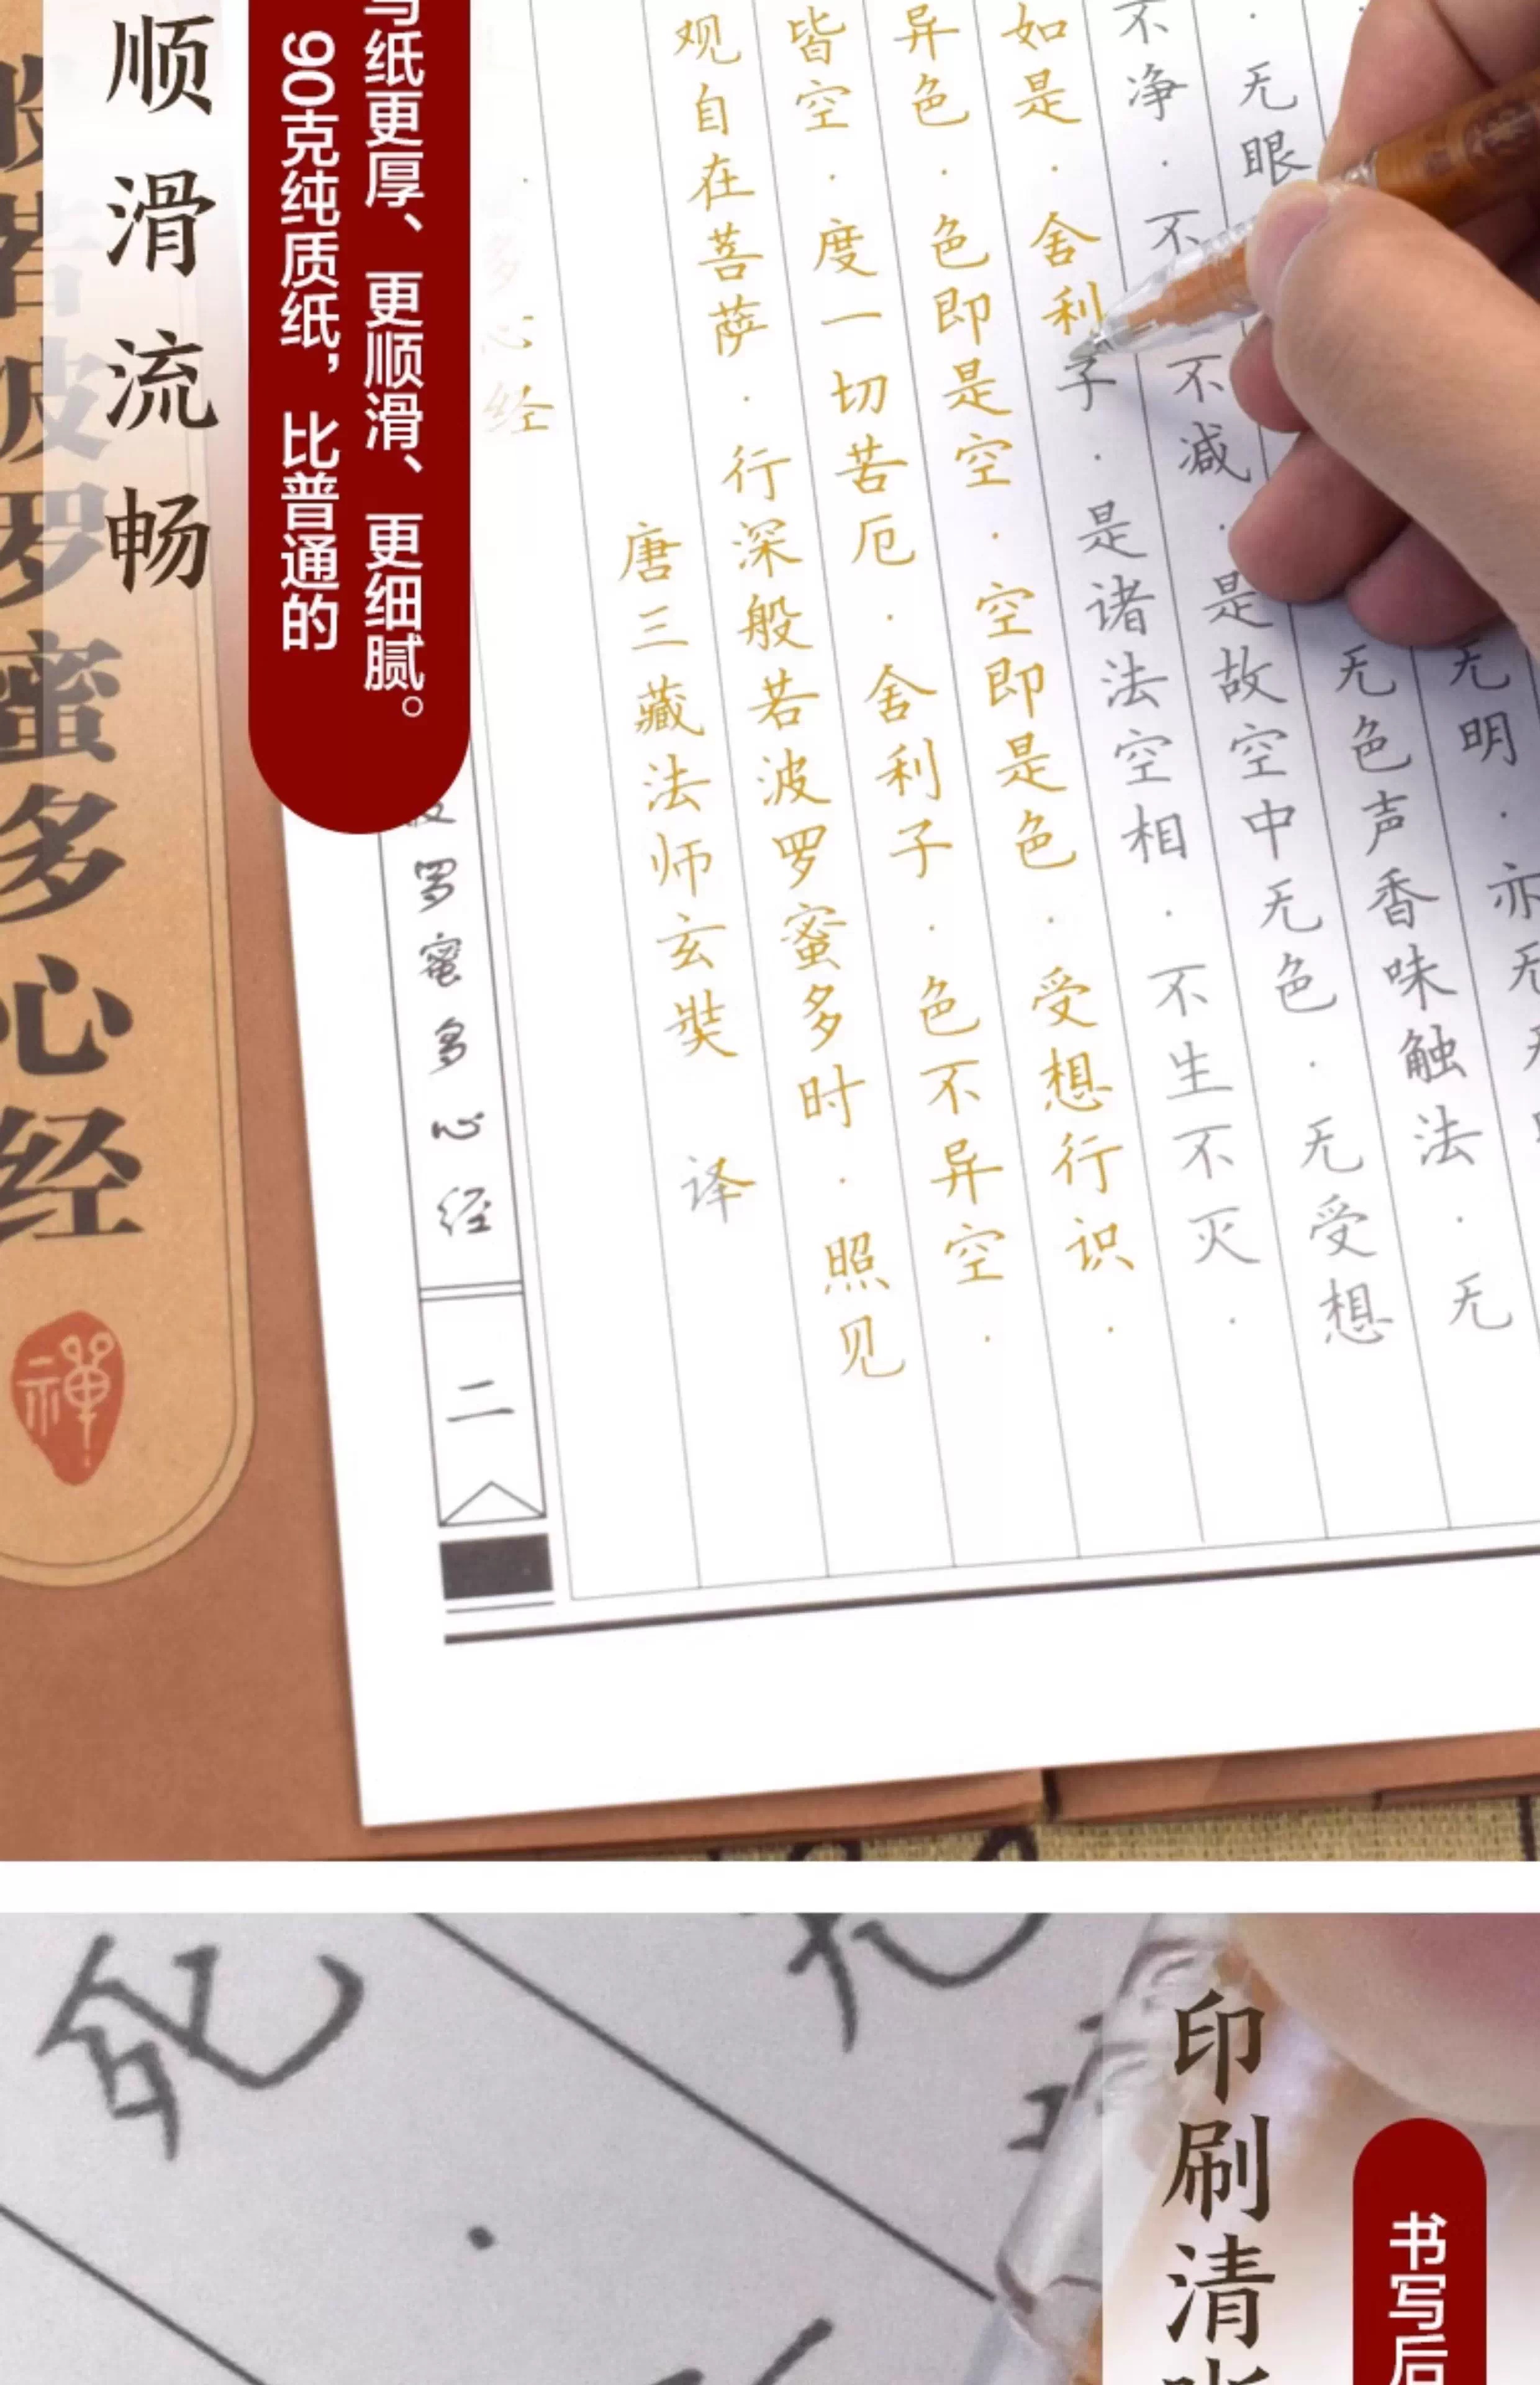 顺滑流畅
90克纯质纸，比普通的
写纸更厚、更顺滑、更细腻。
若波罗蜜多心经
禅
罗蜜多心经
二
多心经
唐三藏法师玄奘 译
观自在菩萨·行深般若波罗蜜多时·照见
皆空·度一切苦厄·舍利子·色不异空·
异色·色即是空·空即是色·受想行识·
如是·舍利子·是诸法空相·不生不灭·
不净·不 不减·是故空中无色·无受想
无眼 无色声香味触法·无
无明·亦无
印刷清晰
书写后